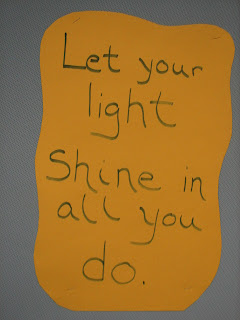 Let your
light
Shine in
all you
do.